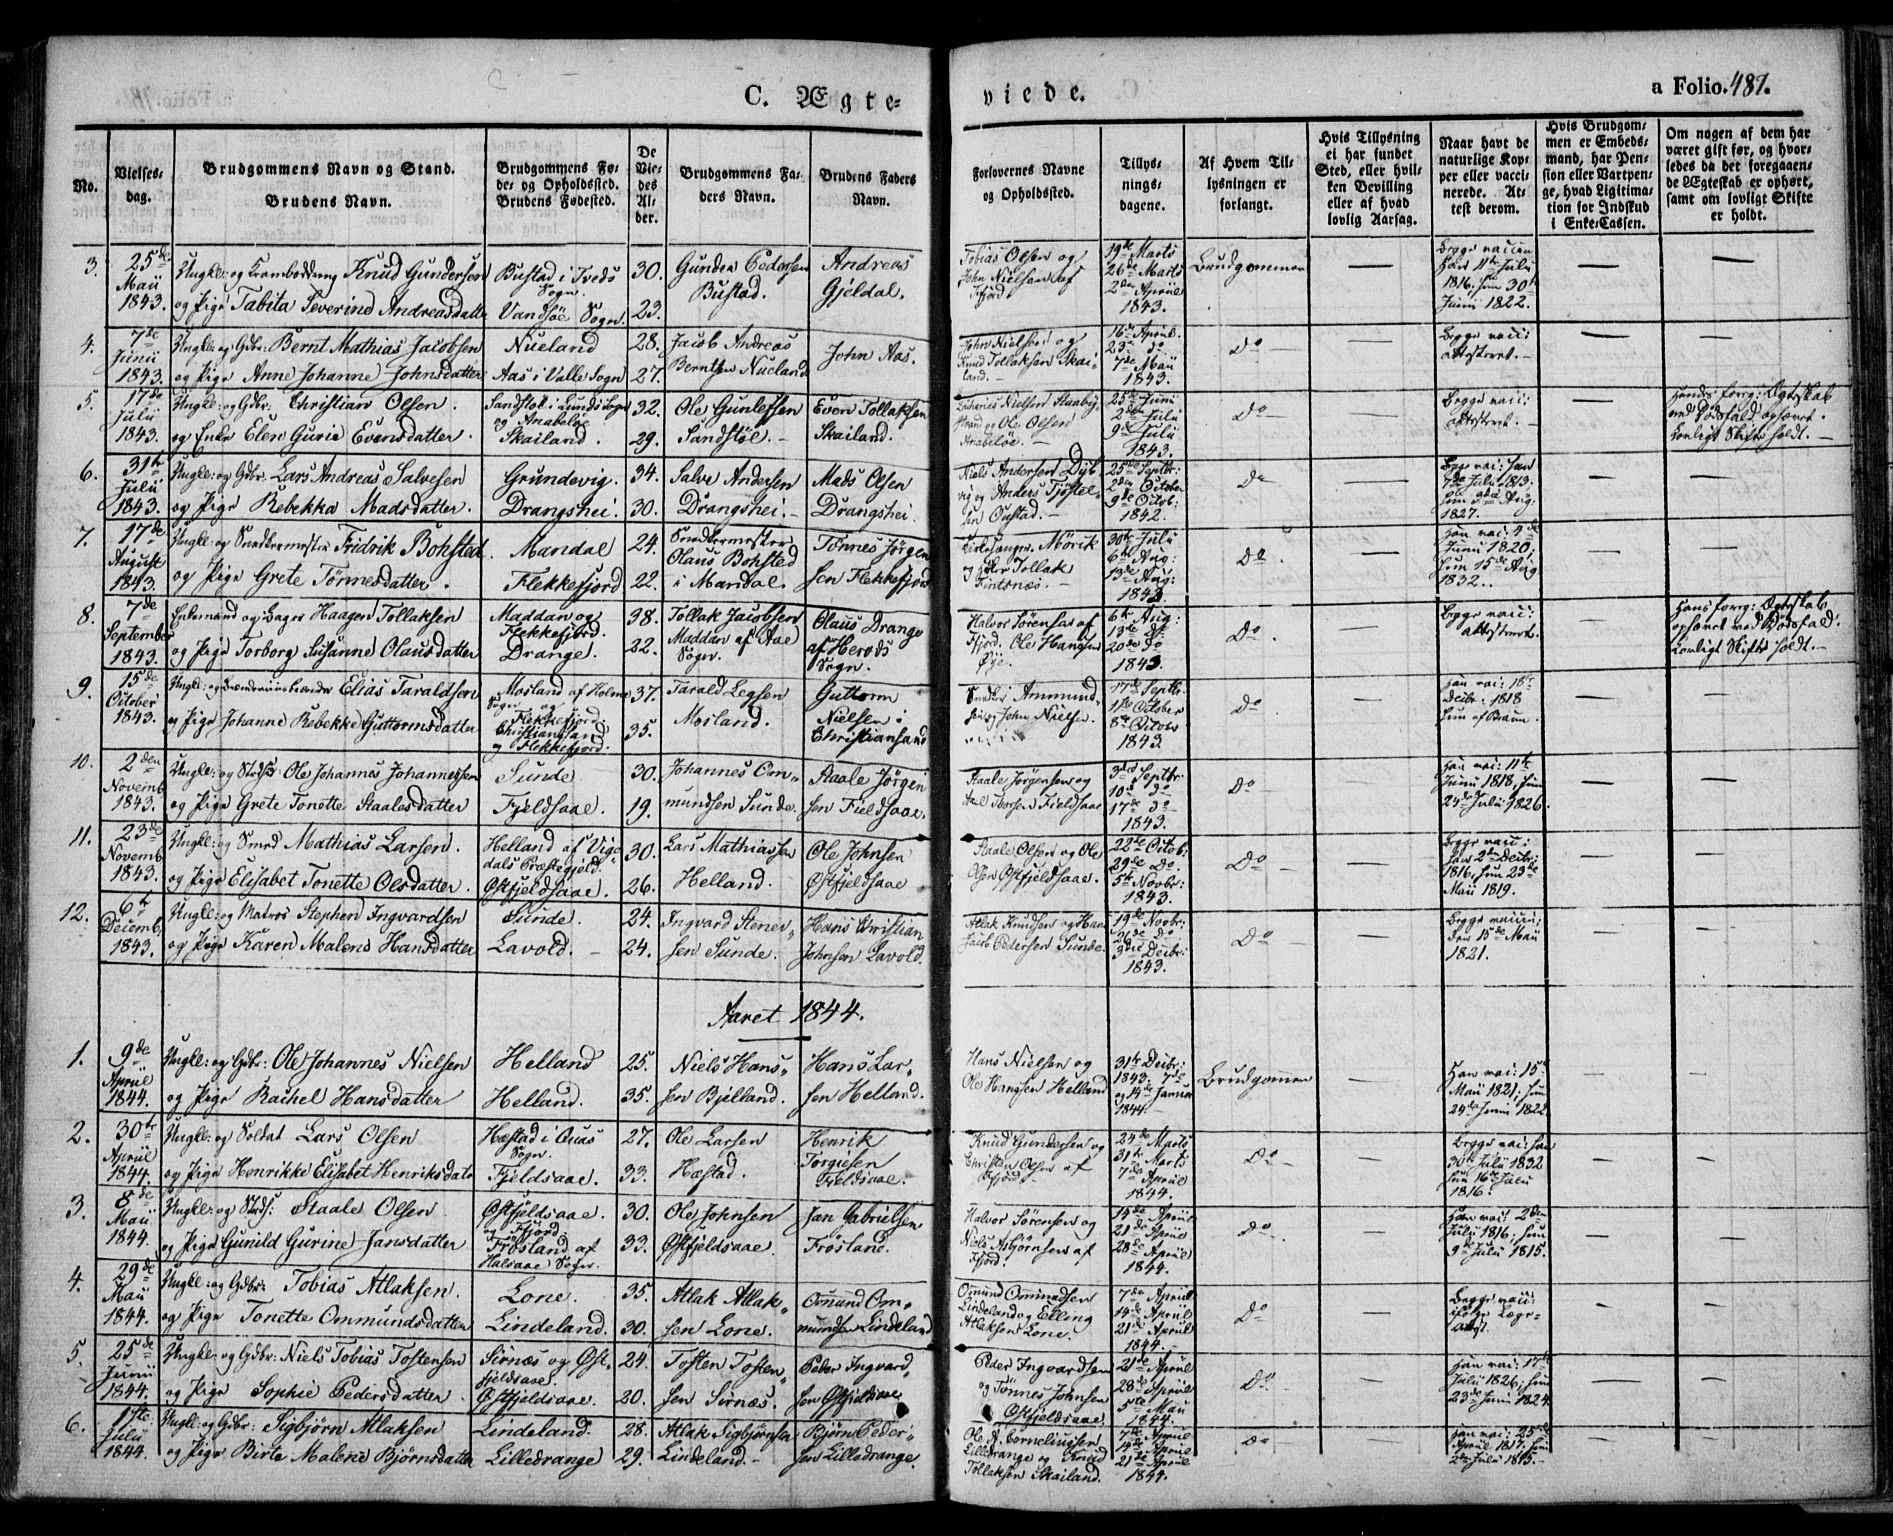 C. Ægte=
viede.
a Folio. 487.
No.
Vielses=
dag.
Brudgommens Navn og Stand.
Brudens Navn.
Brudgommens Fø=
de= og Opholdssted.
Brudens Fødested.
De
Vie=
des
Al=
der.
Brudgommens Fa=
ders Navn.
Brudens Faders
Navn.
Forlovernes Navne
og Opholdssted.
Tillys=
nings=
dagene.
Af Hvem Til=
lysningen er
forlangt.
Hvis Tillysning
ei har fundet
Sted, eller hvil=
ken Bevilling
eller af hvad
lovlig Aarsag.
Naar havt de
naturlige Kop=
per eller vacci=
nerede. At=
test derom.
Hvis Brudgom=
men er Embeds=
mand, har Pen=
sion eller Vartpen=
ge, hvad Ligitima=
tion for Indskud
i Enke=Cassen.
Om nogen af dem har
været gift før, og hvor=
ledes da det foregaaen=
de Ægteskab er ophørt,
samt om lovligt Skifte
er holdt.
3. 25de Maii 1843.
Ungkl: og Knud Gundersen
og Pige Tabita Severine Andreasdatter
Bustad i Hveds Sogn.
Vandsøe Sogn.
30.
23.
Gunder Pedersen
Bustad.
Andreas
Gjeldal.
Tobias Olsen og
John Nielsen af
Fjord
19de Marts
26de Marts
2den Apriil
1843.
Brudgommen
Begge vacc:
Han 11te Julii
1816. hun 30te
Junii 1822.
4. 7de Junii 1843.
Ungkl: og Gdbr: Bernt Mathias Jacobsen
og Pige Anne Johanne Johnsdatter
Nueland
Aas i Valle Sogn
28.
27.
Jacob Andreas
Berntsen Nueland
John Aas.
John Nielsen og
Knud Tollaksen Skai=
land.
16de Apriil.
23de do
7de Maii
1843.
Do
Begge vacc:
attesteret.
5. 17de Julii 1843.
Ungkl: og Gdbr: Christian Olsen.
og Enke Elen Gurie Evensdatter.
Sandstøl i Lunds Sogn
og Anabeløe
Skailand.
32.
29.
Ole Gunlefsen
Sandstøl.
Even Tollaksen
Skailand.
Zacharias Nielsen
og Ole Olsen
Anabeløe
25de Juni
2den Julii
9de Julii
1843.
Do
Begge vacc:
attesteret.
Hendes forrg: Ægteskab
ved Dødsfald ophævet.
Lovligt Skifte holdt.
6. 31te Julii 1843.
Ungkl: og Gdbr: Lars Andreas Salvesen
og Pige Rebekka Madsdatter.
Grundevig.
Drangshei.
34.
30.
Salve Andersen
Drangshei.
Mads Olsen
Drangshei.
Niels Andersen Dyb
vig og Anders Tjøstel=
sen Oustad.
25de Septbr:
2den October
9de Octob:
1842.
Do
Begge vac: han
7de Julii 1813.
hun 9de Aug.
1827.
7. 17de August 1843.
Ungkl: og Snedkermester Fridrik Bohsted.
og Pige Grete Tønnesdatter.
Mandal
Flekkefjord
24.
22.
Snedkermester
Olaus Bohsted
i Mandal.
Tønnes Jørgen
sen Flekkefjord
Kirkesanger Mørik
og Tollak
30te Julii
6te Aug:
13de Aug:
1843.
Do.
Han vac: 4de
Junii 1820;
hun 15de Aug
1832.
8. 7de September 1843.
Enkemand og Bager Haagen Tollaksen
og Pige Torborg Susanne Olausdatter
Maddan og
Flekkefjord.
Drange.
38.
22.
Tollak Jacobsen
Maddan af Aae
Sogn.
Olaus Drange
af Herods
Sogn.
Halvor Sørensen af
Fjord. Ole Hansen
Øye.
6te Aug:
13de do
20de do
1843.
Do.
Begge vacc:
attesteret.
Hans forrg: Ægteskab
ophævet ved Dødsfald.
Lovligt Skifte holdt.
9. 15de October 1843.
Ungkl: og Elias Taraldsen
og Pige Johanne Rebekke Guttormsdatter
Mosland af Holme
Sogn og
Flekkefjord.
Christiansand
og Flekkefjord.
37.
35.
Tarald Legsen
Mosland.
Guttorm
Nielsen i
Christiansand
Snedker Ammund=
sen og John Nielsen.
17de Septbr
1ste October
8de October
1843.
Do
Han vac: 18de
Decbr: 1818
hun af Barn.
10. 2den Novemb 1843.
Ungkl: og Strdsd: Ole Johannes Johannessen
og Pige Grete Tonette Staalesdatter
Sunde
Fjeldsaae.
30.
19.
Johannes Om=
mundsen Sunde.
Staale Jørgen
sen Fieldsaae.
Staale Jørgensen og
Aal Torsen Fieldsaae
3die Septbr
10de do
17de do
1843.
Do
Han vac: 11te
Junii 1818; hun
24de Julii 1826.
11. 23de Novemb 1843.
Ungkl: og Smed Mathias Larsen.
og Pige Elisabet Tonette Olsdatter.
Helland af Vige
dals Præstegjeld.
Østfjeldsaae.
30.
26.
Lars Mathiassen
Helland.
Ole Johnsen
Østfjeldsaae
Staale Olsen og Ole
Olsen Østfjeldsaae.
22de Octob:
29de do.
5te Novbr:
1843.
Do
Begge vacc:
Han 2den Decbr:
1816; hun 23de
Maii 1819.
12. 6te Decemb. 1843.
Ungkl: og Matros Stephen Ingvardsen
og Pige Karen Malene Hansdatter
Sunde.
Lavold.
24.
24.
Ingvard Stener=
sen Sunde.
Hans Christian
Johnsen Lavold.
Atlak Knudsen og Hans
Jacob Pedersen Sunde.
19de Novbr:
26de do
3die Decbr:
1843.
Do
Begge vacc:
den 15de Maii
1821.
Aaret 1844.
1. 9de Apriil 1844.
Ungkl: og Gdbr: Ole Johannes Nielsen
og Pige Rachel Hansdatter
Helland
Helland.
25.
35.
Niels Hans=
sen Bjelland.
Hans Lar=
sen Helland.
Hans Nielsen og
Ole Hansen Helland
31te Decbr:
1843. 7de
og 14de Januar
1844.
Brudgomen
Han vac: 15de
Maii 1821; hun
24de Junii 1822.
2. 30te Apriil 1844.
Ungkl: og Soldat Lars Olsen
og Pige Henrikke Elisabet Henriksdatr
Hæstad i Qvas
Sogn.
Fjeldsaae.
27.
33.
Ole Larsen
Hæstad.
Henrik
Torgiesen
Fjeldsaae.
Knud Gundersen og
Christen Olsen af
Fjord
24de Marts
31te Marts
7de Apriil
1844.
Do
Begge vac: han
30te Julii 1832
hun 16de Julii
1816.
3. 8de Maii 1844.
Ungkl: og Strds: Staale Olsen
og Pige Gunild Gurine Jansdatter
Østfjeldsaae.
og Fjord
Frøstand af
Halsaae Sogn.
30.
33.
Ole Johnsen
Østfjeldsaae.
Jan Gabrielsen
Frøstane.
Halvor Sørensen og
Niels Asbjørnsen af
Fjord.
14de Apriil
21de Apriil
28de Apriil
1844.
Do
Han vac: 2den
Julii 1816; hun
9de Julii 1815.
4. 29de Maii 1844.
Ungkl: og Gdbr: Tobias Atlaksen.
og Pige Tonette Ommundsdatter
Lone.
Lindeland.
35.
30.
Atlak Atlak=
sen Lone.
Omund Om=
mundsen Lindeland
Omund Ommundsen
Lindeland og Elling
Atlaksen Lone.
7de Apriil
14de Apriil
21de Apriil
1844.
Do
Begge vacc:
ifølge Læge=
attest.
5. 25de Junii 1844.
Ungkl: og Gdbr: Niels Tobias Tostensen
og Pige Sophie Pedersdatter.
Sirnæs og Øst=
fjeldsaae.
Østfjeldsaae.
24.
20.
Tosten Tosten=
sen Sirnæs.
Peder Ingvard=
sen Østfjeldsaae
Peder Ingvardsen
og Tønnes Johnsen
Østfjeldsaae.
21de Apriil
28de Apriil
5te Maii
1844.
Do
Han vac: 17de
Julii 1826; hun
23de Junii 1824.
6. 1ste Julii 1844.
Ungkl: og Gdbr: Sigbjørn Atlaksen
og Pige Birte Malene Bjørnsdatter
Lindeland.
Lilledrange
28.
29.
Atlak Sigbjørnsen
Lindeland.
Bjørn Peder=
sen Lilledrange.
Ole A. Corneliussen
Lilledrange og Knud
Tollaksen Skailand.
7de Apriil
14de Apriil
21de Apriil
1844.
Do
Han vac: 25de
Apriil 1817. hun
2den Julii 1815.